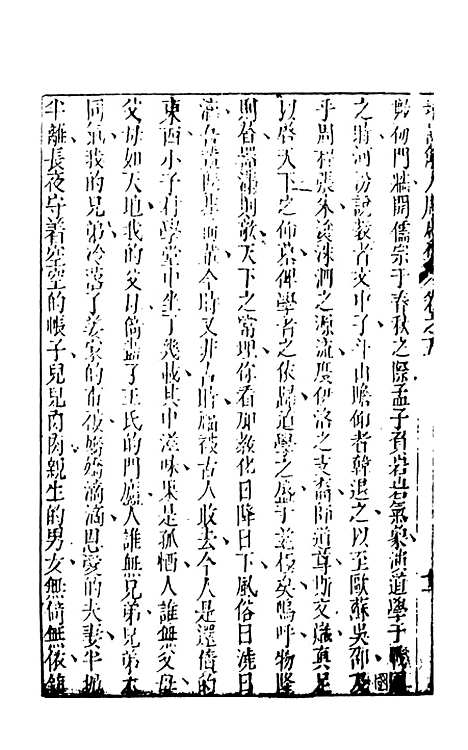 數仞門牆開儒宗于春秋之際孟子負岩岩氣象演道學于戰國
之時河汾說教者文中子斗山瞻仰者韓退之以至歐蘇吳邵及
乎周程張朱溪洙泗之源流度伊洛之支裔師道尊斯文熾真足
以啓天下之仰慕俾學者之依歸道學之盛于茲極矣嗚呼物隆
則替器滿則欹天下之常理你看如教化日降日下風俗日澆日
漓吾輩既非前輩今時又非古時腦被古人收去今人是還債的
東西小子有學堂中坐了幾載其中滋味果是孤栖人誰無父母
父母如天地我的父母倚盡了王氏的門廬人誰無兄弟兄弟本
同氣我的兄弟冷落了姜家的布被嬌嬌滴滴恩愛的夫妻半抛
半離長夜守着空空的帳子兒兒肉肉親生的男女無倚無依鎮